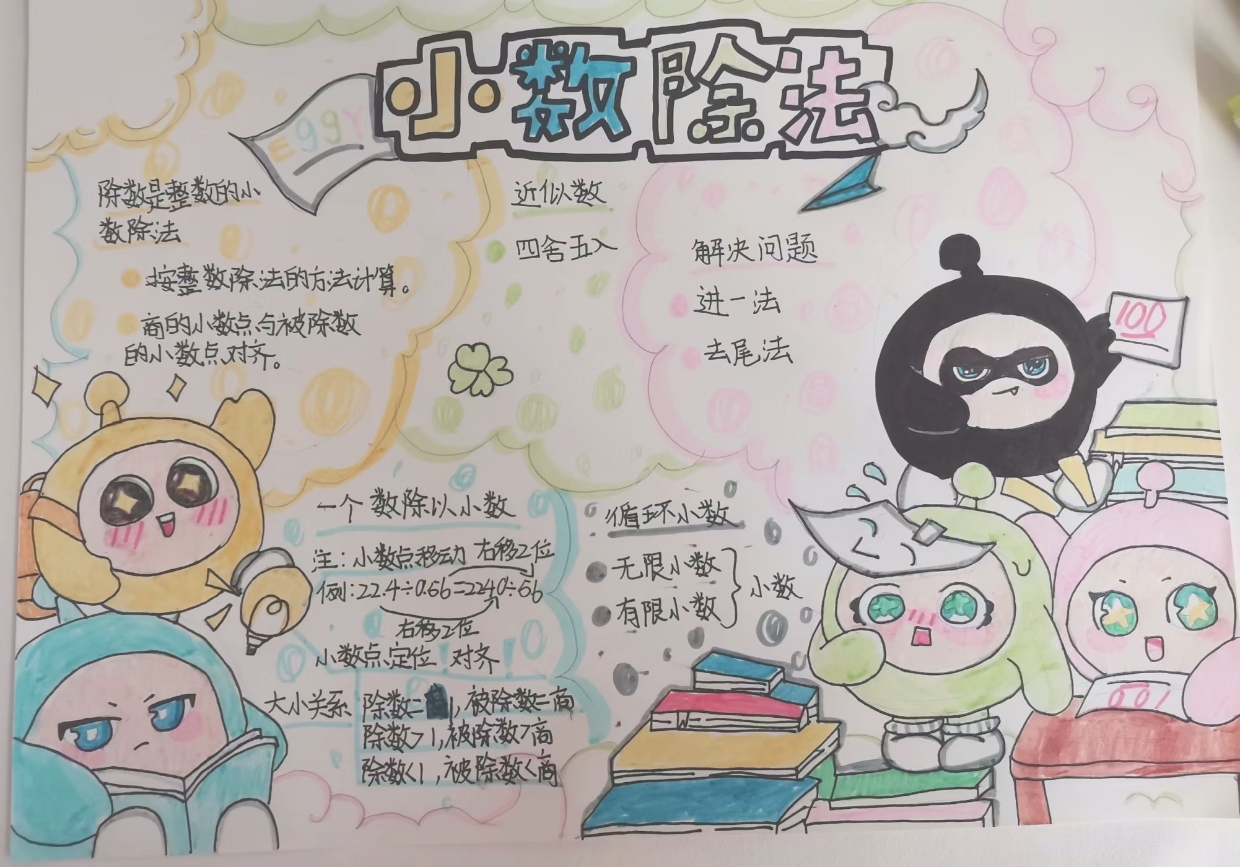 小数除法
Eggy
除数是整数的小
数除法
按整数除法的方法计算。
商的小数点与被除数
的小数点对齐。
近似数
四舍五入
解决问题
进一法
去尾法
100
一个数除以小数
注:小数点移动 右移2位
例:22.4÷0.56=2240÷56
右移2位
小数点定位 对齐
大小关系
除数=1,被除数=商
除数>1,被除数>商
除数<1,被除数<商
循环小数
无限小数
有限小数
小数